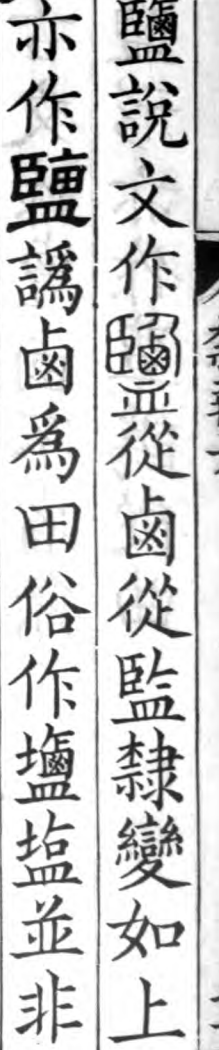 鹽說文作鹽從鹵從監隸變如上
亦作𪉩譌鹵爲田俗作塩塩並非